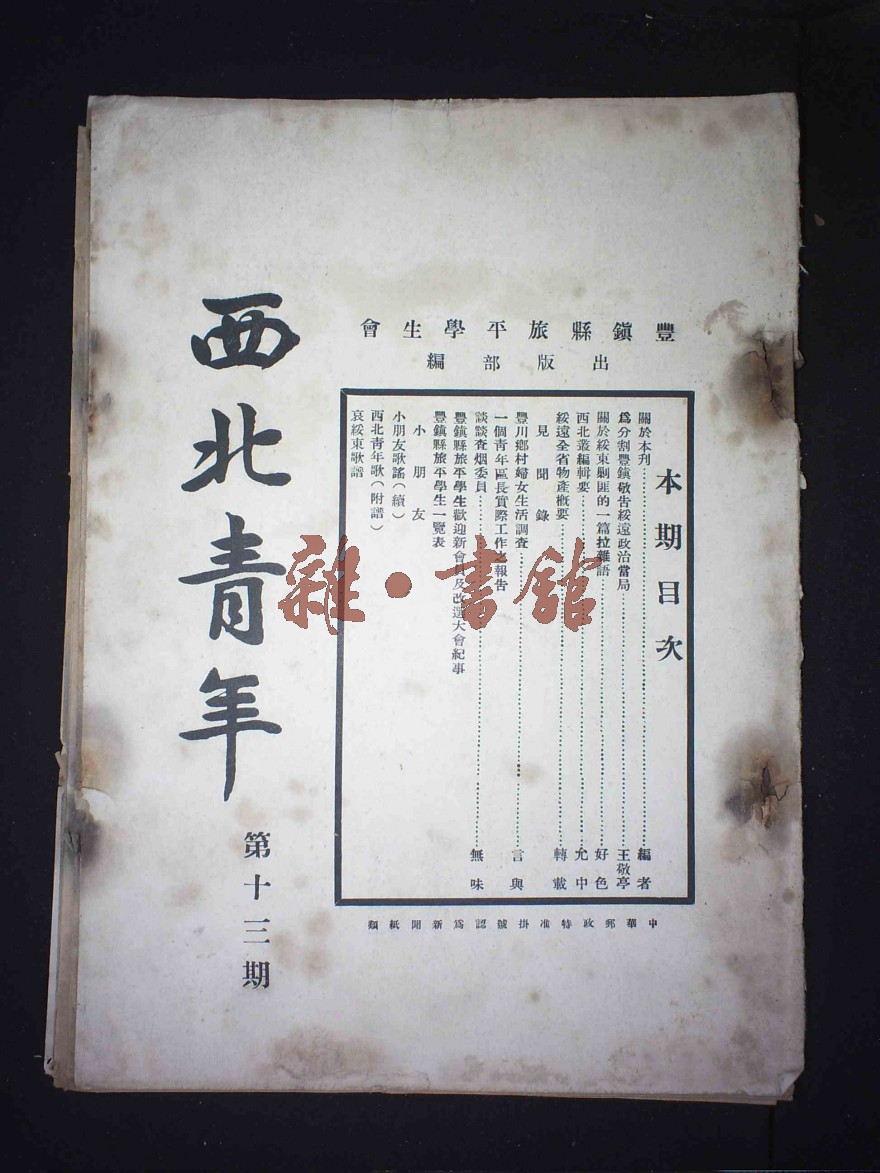 豐鎭縣旅平學生會
出版部編
本期目次
關於本刊……編者
爲分割豐鎭敬告綏遠政治當局……王敬亭
關於綏東剿匪的一篇拉雜語……好色
西北叢編輯要……尤中
綏遠全省物產概要……轉載
見聞錄
豐川鄉村婦女生活調查……言與
一個青年區長實際工作之報告
談談查烟委員……無味
豐鎭縣旅平學生歡迎新會員及改選大會紀事
豐鎭縣旅平學生一覽表
小朋友
小朋友歌謠(續)
西北青年歌(附譜)
哀綏東歌譜
中華郵政特准掛號認爲新聞紙類
西北青年
第十三期
雜·書館